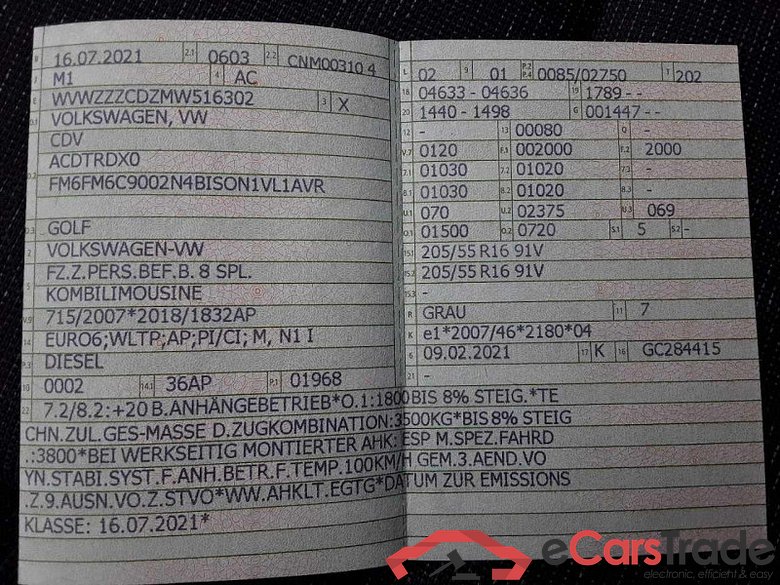 B 16.07.2021 2.1 0603 2.2 CNM00310 4
J M1 4 AC
E WVWZZZCDZMW516302 3 X
D.1 VOLKSWAGEN, VW
CDV
D.2 ACDTRDX0
FM6FM6C9002N4BISON1VL1AVR
D.3 GOLF
2 VOLKSWAGEN-VW
5 FZ.Z.PERS.BEF.B. 8 SPL.
KOMBILIMOUSINE
V.9 715/2007*2018/1832AP
14 EURO6;WLTP;AP;PI/CI; M, N1 I
P.3 DIESEL
10 0002 14.1 36AP P.1 01968
L 02 9 01 P.2 P.4 0085/02750 T 202
18 04633 - 04636 19 1789 - -
20 1440 - 1498 G 001447 - -
12 - 13 00080 Q -
V.7 0120 F.1 002000 F.2 2000
7.1 01030 7.2 01020 7.3 -
8.1 01030 8.2 01020 8.3 -
U.1 070 U.2 02375 U.3 069
O.1 01500 O.2 0720 S.1 5 S.2 -
15.1 205/55 R16 91V
15.2 205/55 R16 91V
15.3 -
R GRAU 11 7
K e1*2007/46*2180*04
6 09.02.2021 17 K 16 GC284415
21 -
22 7.2/8.2:+20 B.ANHÄNGEBETRIEB*O.1:1800 BIS 8% STEIG.*TE
CHN.ZUL.GES-MASSE D.ZUGKOMBINATION:3500KG*BIS 8% STEIG
.:3800*BEI WERKSEITIG MONTIERTER AHK: ESP M.SPEZ.FAHRD
YN.STABI.SYST.F.ANH.BETR.F.TEMP.100KM/H GEM.3.AEND.VO
.Z.9.AUSN.VO.Z.STVO*WW.AHKLT.EGTG*DATUM ZUR EMISSIONS
KLASSE: 16.07.2021*
eCarsTrade
electronic, efficient & easy